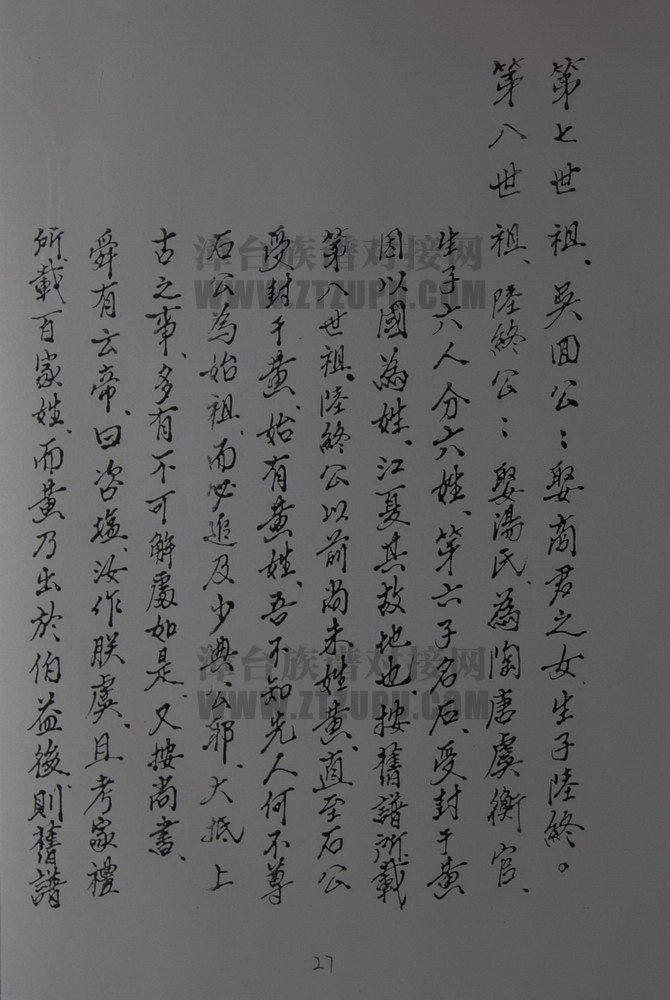 第七世祖、吳回公：娶商君之女、生子陸終。
第八世祖、陸終公：娶湯氏、為陶唐虞衡官、
生子六人分六姓、第六子名石、受封于黄
因以國為姓、江夏其故地也、按舊譜所載
第八世祖、陸終公以前尚未姓黄、直至石公
受封于黄、始有黄姓、吾不知先人何不尊
石公為始祖、而必追及少典公邪、大抵上
古之事、多有不可解處如是、又按尚書、
舜有云帝、曰咨塩、汝作朕虞、且考家禮
所載百家姓、而黄乃出於伯益後、則舊譜
27
漳台族谱对接网
WWW.ZTZUPU.COM
漳台族谱对接网
WWW.ZTZUPU.COM